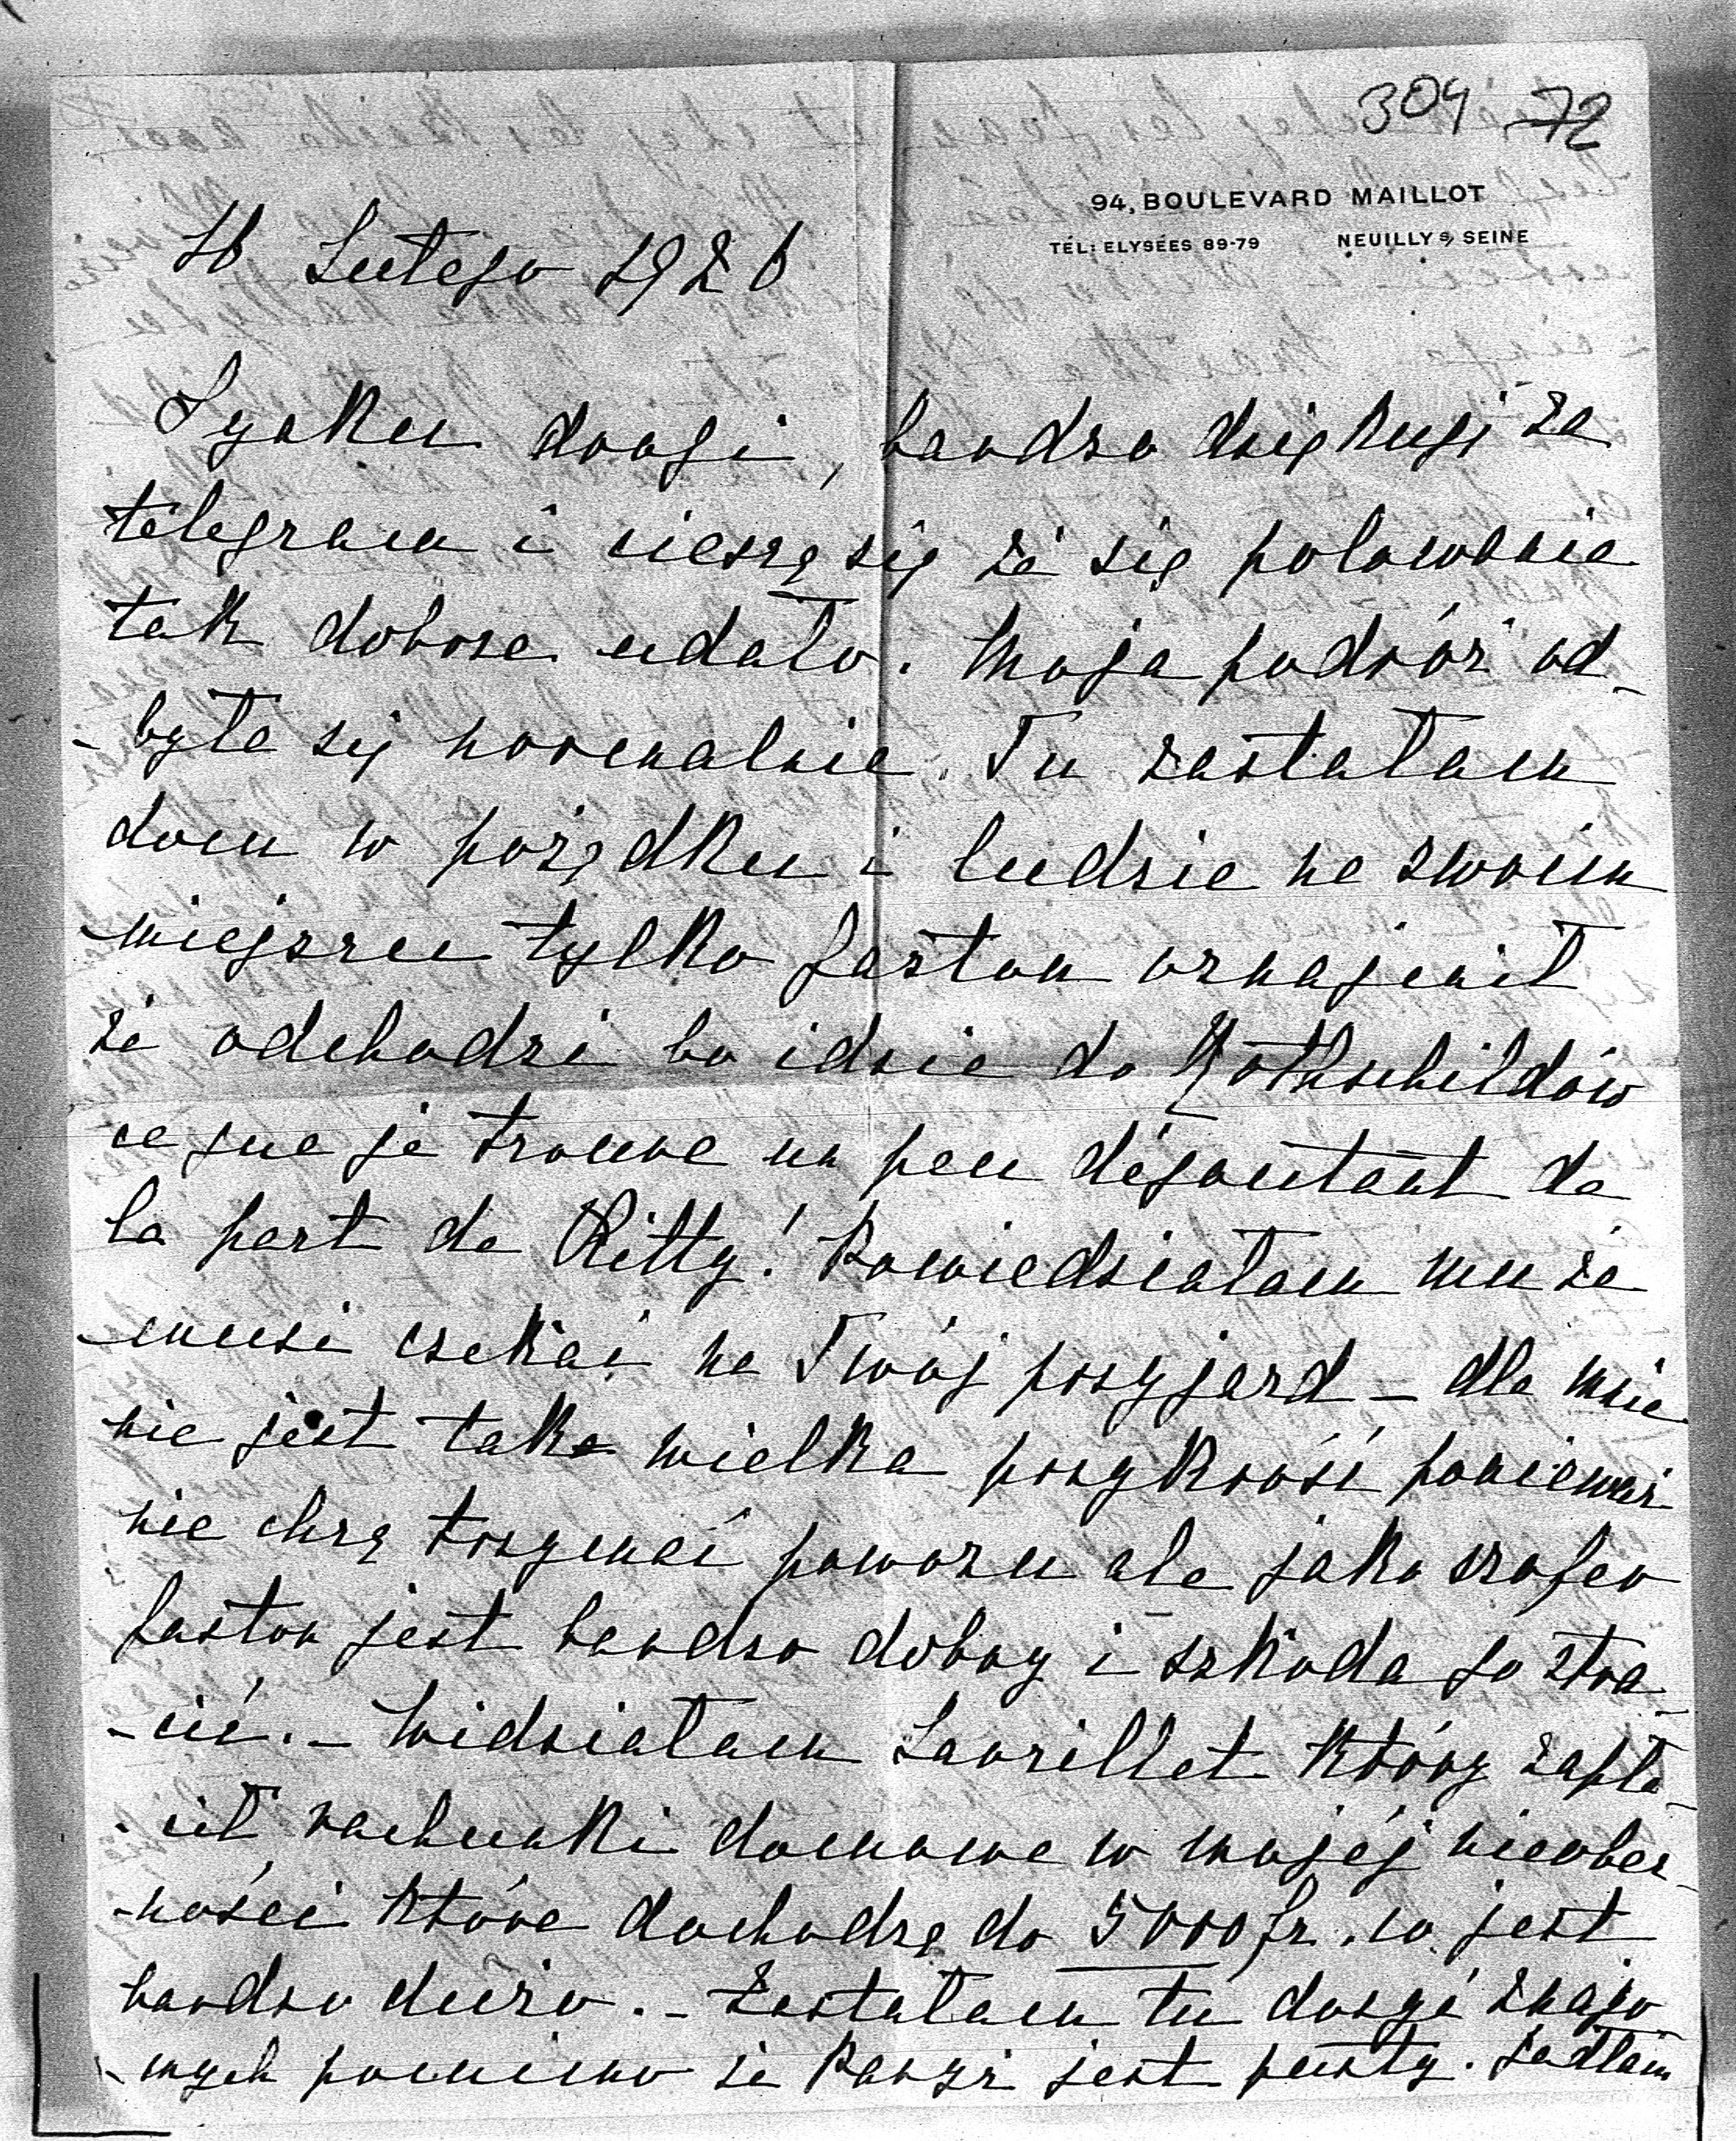 304 72
94, BOULEVARD MAILLOT
TÉL: ELYSÉES 89-79 NEUILLY S/ SEINE
16 Lutego 1926
drogi, bardzo dziękuję za
telegram i cieszę się że się polowanie
tak dobrze udało. Moja podróż od-
-była się normalnie. Tu zastałam
dom w pożądku i ludzie na swoim
miejscu tylko Gaston oznajmił
że odchodzi bo idzie do Rothschildów
ce que je trouve un peu dégoutant de
la part de Kitty! Powiedziałam mu że
musi czekać na Twój przyjazd – dla mnie
nie jest taka wielka przykrość ponieważ
nie chcę trzymać powozu ale jako szofer
Gaston jest bardzo dobry i szkoda go stra-
-cić. – Widziałam Lavrillet który zapła-
-cił rachunki domowe w mojéj nieobec-
-ności które dochodzą do 5000 fr. co jest
bardzo dużo. – Zastałam tu dosyć znajo-
-mych pomimo że Paryż jest pusty. Jadłam